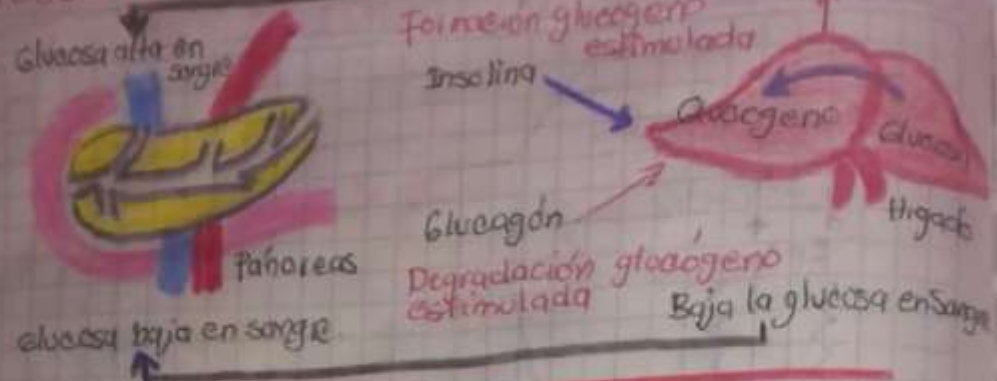 Glucosa alta en
sangre
Formación glucogeno
estimulada
Insolina
Glucosa
Higado
Glucagón
Páncreas
Degradación glucógeno
estimulada
Baja la glucosa en Sangre
Glucosa baja en sangre